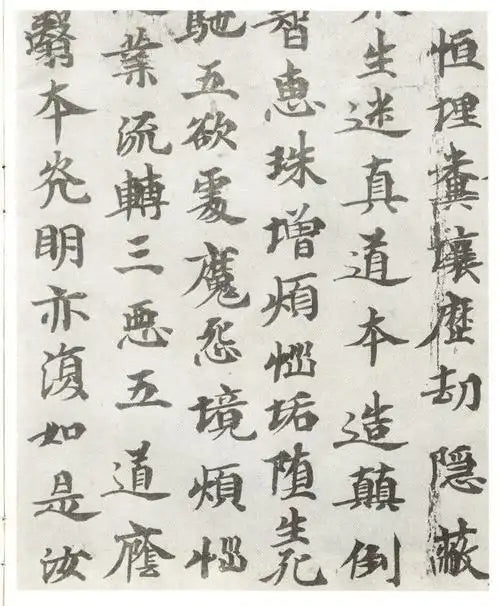 恒埋糞壤歷劫隱蔽
生迷真道本造顛倒
智惠珠增煩惱垢堕生死
馳五欲處魔怨境煩惱
業流轉三惡五道廕
翳本光明亦復如是汝